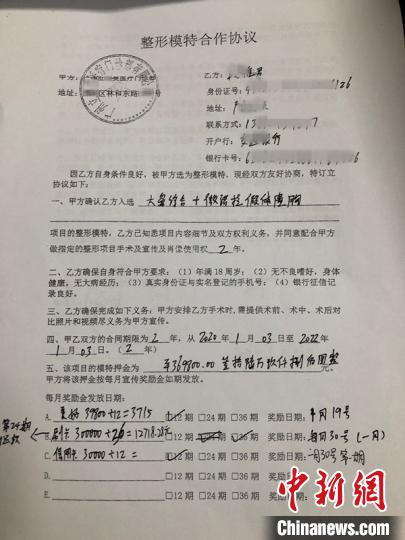 整形模特合作协议
甲方:
医疗门诊部
乙方:
身份证号:
126
地址:
区林和东路
号
地址:
联系方式: 13
7
开户行:
银行
银行卡号: 6
因乙方自身条件良好,被甲方选为整形模特。现经双方友好协商,特订立
协议如下:
一、甲方确认乙方入选
项目的整形模特,乙方已知悉项目内容细节及双方权利义务,并同意配合甲方
做指定的整形项目手术及宣传及肖像使用权 2 年。
二、乙方确保自身符合甲方要求:(1)年满 18 周岁;(2)无不良嗜好、身体
健康,无大病经历;(3)真实身份证与实名登记的手机号;(4)银行征信记
录良好。
三、乙方确保完成如下义务:甲方安排乙方手术时,需提供术前、术中、术后对
比照片和视频尽义务为甲方宣传。
四、甲乙双方的合同期限为 2 年,从 2020 年 1 月 03 日至 2022 年
1 月 03 日。(2 年)
五、该项目的模特押金为
元。
甲方将该押金按每月宣传奖励金如期发放。
每月奖励金发放日期:
A. 39800÷12=3715 □12 期 □24 期 □36 期 奖励日期: 19号
B. 30000÷ □12 期 □24 期 □36 期 奖励日期: 30号(一月)
C. 信用卡 30000÷12= □12 期 □24 期 □36 期 奖励日期: 30号
D. □12 期 □24 期 □36 期 奖励日期:
E. □12 期 □24 期 □36 期 奖励日期:
第24期
中新网
Chinanews.com